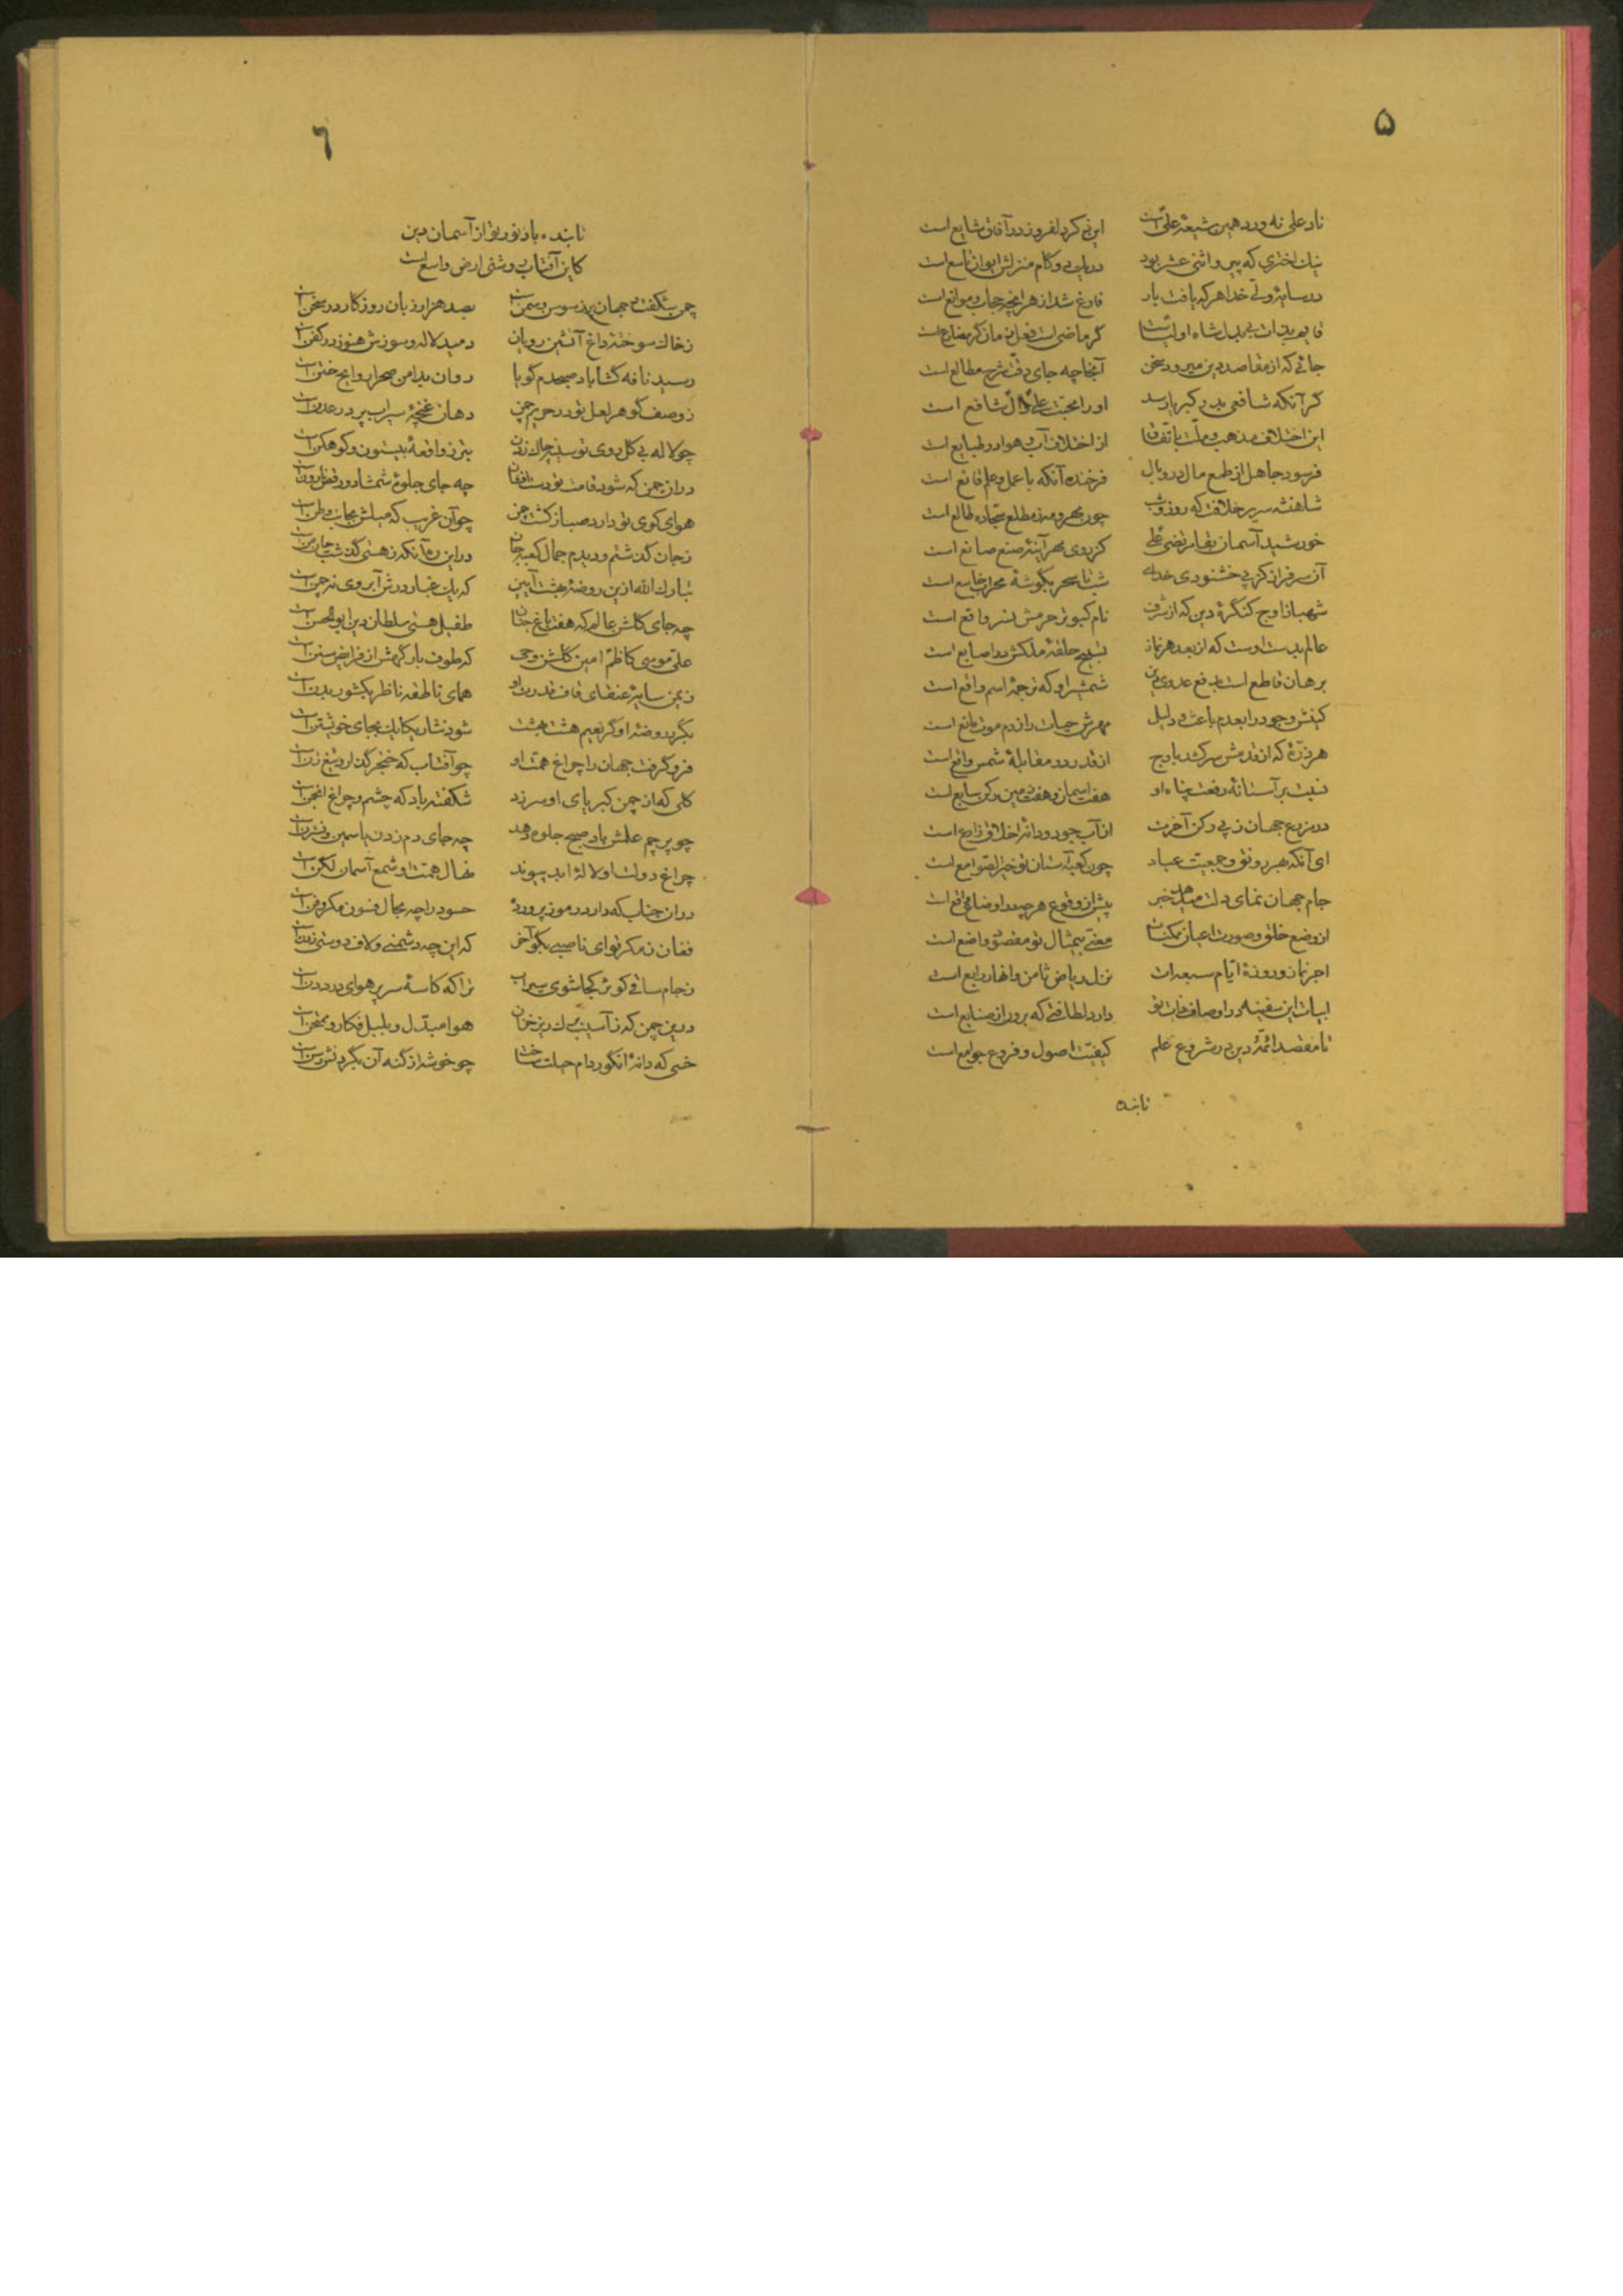 ۵
ناد علی نه ورد همین شیعهٔ علی است این ذکر دلفروز در آفاق شایع است
نیک اختری که پیرو اثنی عشر بود
در سایهٔ ولی خدا هر که یافت بار فارغ شد از هر آنچه حجاب و موانع است
جائی که از مقاصد دین میرود سخن آنجا چه جای دقت شرح مطالع است
گر آنکه شافعی بدر کبریا رسد او را محبت علی و آل شافع است
این اختلاف مذهب و ملت باتفاق از اختلاف آب و هوا در طبایع است
فرسود جاهل از طمع مال در وبال فرخنده آنکه با عمل و علم قانع است
شاهنشه سریر خلافت که روز و شب چون مهر و مه ز مطلع سجاده طالع است
خورشید آسمان بقا مرتضی علی کز روی مهر آینهٔ صنع صانع است
آن سرفراز کز پی خشنودی خدای شب تا سحر بگوشهٔ محراب خاشع است
شهباز اوج کنگرهٔ دین که از شرف نام کبوتر حرمش نسر واقع است
عالم بدست اوست که از بعد هر نماز تسبیح حلقهٔ ملکش در اصابع است
برهان قاطع است بدفع عدوی دین شمشیر او که ترجمهٔ اسم واقع است
کینش وجود را بعدم باعث و دلیل مهرش حیات را ز دم موت مانع است
هر ذرهٔ که از قدمش سر کشد باوج از قدر در مقابلهٔ شمس واقع است
نسبت بر آستانهٔ رفعت پناه او هفت آسمان و هفت زمین رکن سابع است
در مزرع جهان ز پی رکن آخرت از آب جود و دانهٔ اخلاق زارع است
ای آنکه بهر رونق و جمعیت عباد چون کعبه آستان تو خیر الصوامع است
جام جهان نمای دلت میدهد خبر پیش از وقوع هر چه در اوضاع واقع است
از وضع خلق و صورت اعیان ممکنات معنی بیمثال تو مقصود واضع است
اجر نماز و روزهٔ ایام سبعه‌ات نزل ریاض ثامن و انهار رابع است
ابیات این سفینه در اوصاف ذات تو دارد لطافتی که برون از صنایع است
تا مقصد ائمهٔ دین در شروع علم کیفیت اصول و فروع جوامع است
تابنده
٦
تابنده باد نور تو از آسمان دین
کاین آفتاب روشنی ارض واسع است
چمن شکفت و جهان پر ز سوسن و سمن است بصد هزار زبان روزگار در سخن است
ز خاک سوختهٔ داغ آتشین رویان دمید لاله و سوزش هنوز در کفن است
رسید نافه گشا باد صبحدم گویا روان بدامن صحرا روایح ختن است
ز وصف گوهر لعل تو در حریم چمن دهان غنچهٔ سیراب پر در عدن است
چو لاله بی گل روی تو سینه چاک زدن بتر ز واقعهٔ بیستون و کوهکن است
در آن چمن که شود قامت تو دست افشان چه جای جلوهٔ شمشاد و رقص نارون است
هوای کوی تو دارد صبا ز گشت چمن چو آن غریب که میلش بجانب وطن است
ز جان گذشتم و دیدم جمال کعبهٔ جان در این ره آنکه ز هستی گذشت جان من است
تبارک الله از این روضهٔ بهشت آیین که یک غبار درش آبروی نه چمن است
چه جای گلشن عالم که هفت باغ جنان طفیل هستی سلطان دین ابوالحسن است
علی موسی کاظم امین گلشن وحی که طوف بارگهش از فرایض سنن است
ز یمن سایهٔ عنقای قاف قدرت او همای ناطقه ناظر بکشور بدن است
بگرد روضهٔ او گر نعیم هشت بهشت شود نثار یکایک بجای خویشتن است
فرو گرفت جهان را چراغ همت او چو آفتاب که خنجر گذار و تیغ زن است
گلی که از چمن کبریای او سر زد شکفته باد که چشم و چراغ انجمن است
چو پرچم علمش باد صبح جلوه دهد چه جای دم زدن یاسمین و نسترن است
چراغ دولت او لالهٔ ابد پیوند نهال همت او شمع آسمان لگن است
در آن جناب که دارد رموز پرورده حسود را چه مجال فسون و مکر و فن است
فغان ز مکر تو ای ناصبی بگو آخر که این چه دشمنی و لاف دوستی زدن است
ز جام ساقی کوثر کجا شوی سیراب ترا که کاسهٔ سر پر هوای درد دن است
در این چمن که ز آسیب برگ‌ریز خزان هوا مبدل و بلبل فکار و ممتحن است
خسی که دانهٔ انگور دام حیلت ساخت چو خوشه از گنه آن بگردنش رسن است